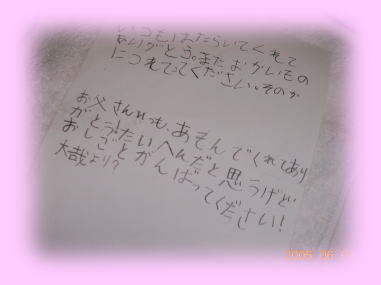 いつもはたらいてくれて
ありがとう。またおかいもの
につれてってください。そのか
お父さんいつも、あそんでくれてあり
がとう!たいへんだと思うけど
おしごとがんばってください!
大哉より?